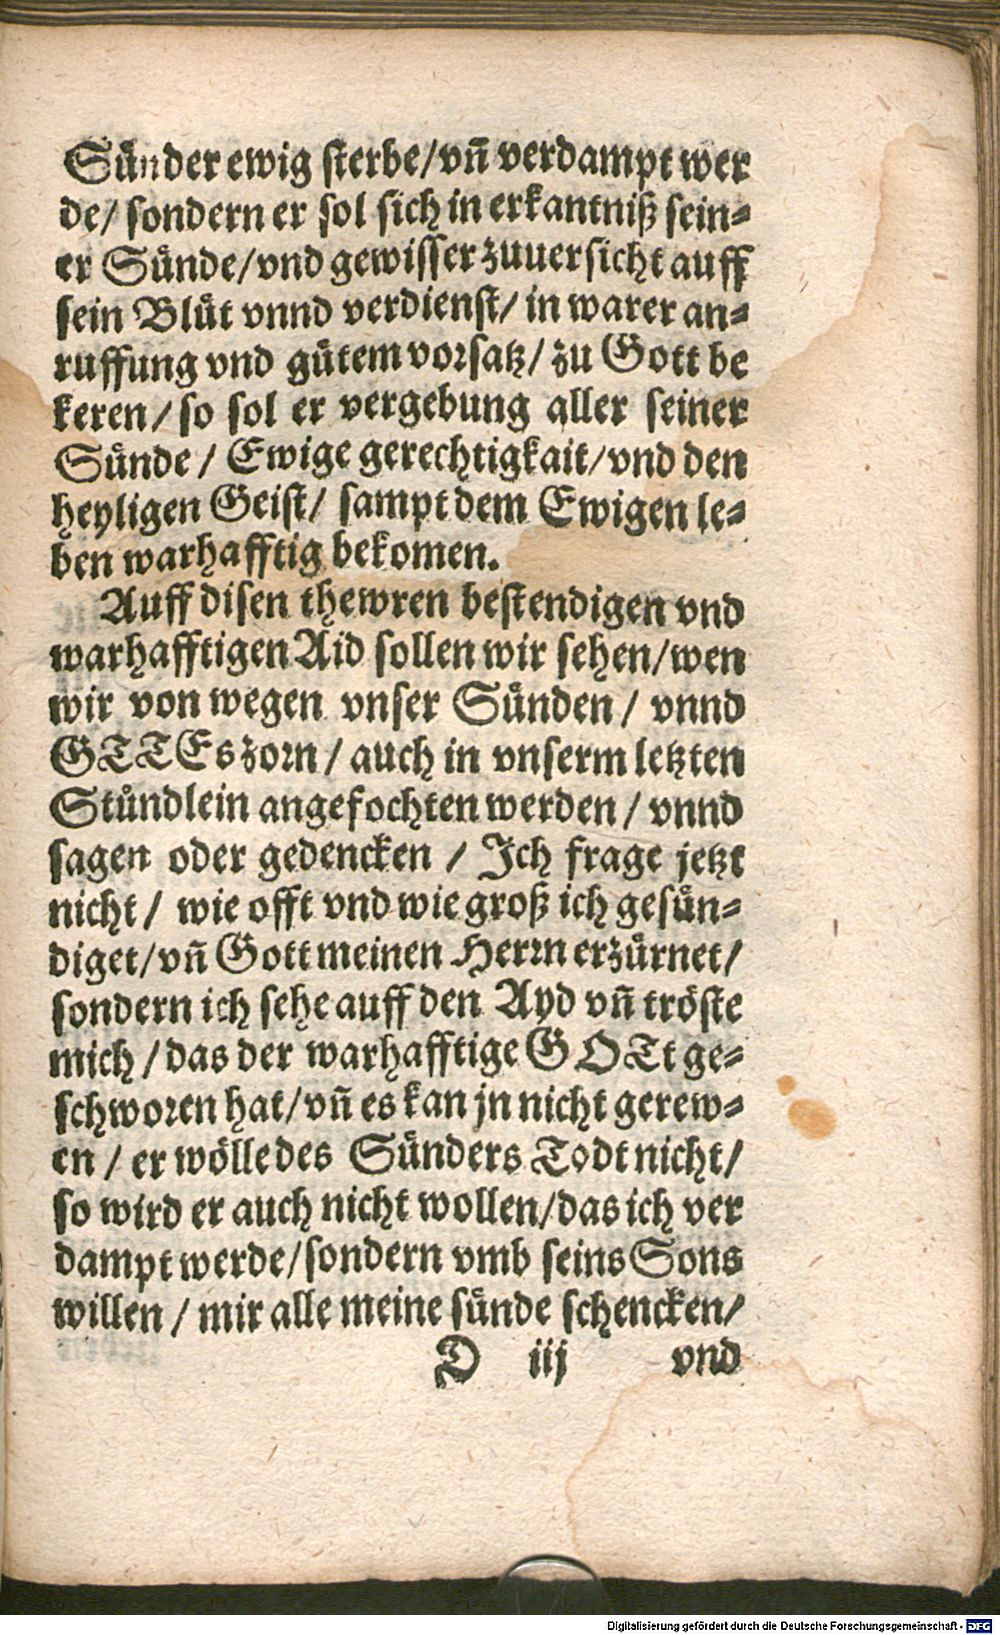 Sünder ewig sterbe/vn̄ verdampt wer
de/ sondern er sol sich in erkantniß sein=
er Sünde/vnd gewisser zuuersicht auff
sein Blůt vnnd verdienst/ in warer an=
ruffung vnd gůtem vorsatz/ zu Gott be
keren/so sol er vergebung aller seiner
Sünde/ Ewige gerechtigkait/vnd den
heyligen Geist/ sampt dem Ewigen le=
ben warhafftig bekomen.
Auff disen thewren bestendigen vnd
warhafftigen Aid sollen wir sehen/wen
wir von wegen vnser Sünden/ vnnd
GTTEs zorn/ auch in vnserm letzten
Stündlein angefochten werden/ vnnd
sagen oder gedencken/ Ich frage jetzt
nicht/ wie offt vnd wie groß ich gesün=
diget/vn̄ Gott meinen Herrn erzürnet/
sondern ich sehe auff den Ayd vn̄ tröste
mich/das der warhafftige GOTt ge=
schworen hat/vn̄ es kan jn nicht gerew=
en/ er wölle des Sünders Todt nicht/
so wird er auch nicht wollen/das ich ver
dampt werde/sondern vmb seins Sons
willen/ mir alle meine sünde schencken/
D iij vnd
Digitalisierung gefördert durch die Deutsche Forschungsgemeinschaft - DFG